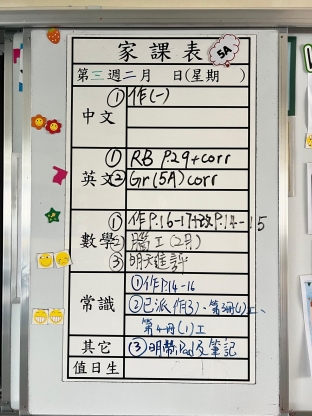 家課表
5A
第三週二月 日(星期 )
中文 ①作(一)
英文 ① RB P.29+corr
② Gr(5A)corr
數學 ① 作P.16-17+改P.14-15
② 腦工(2月)
③ 明天進評
常識 ①作P.14-16
②已派作(3)、第3冊(1)工、
第4冊(1)工
其它 ③明帶Pad及筆記
值日生